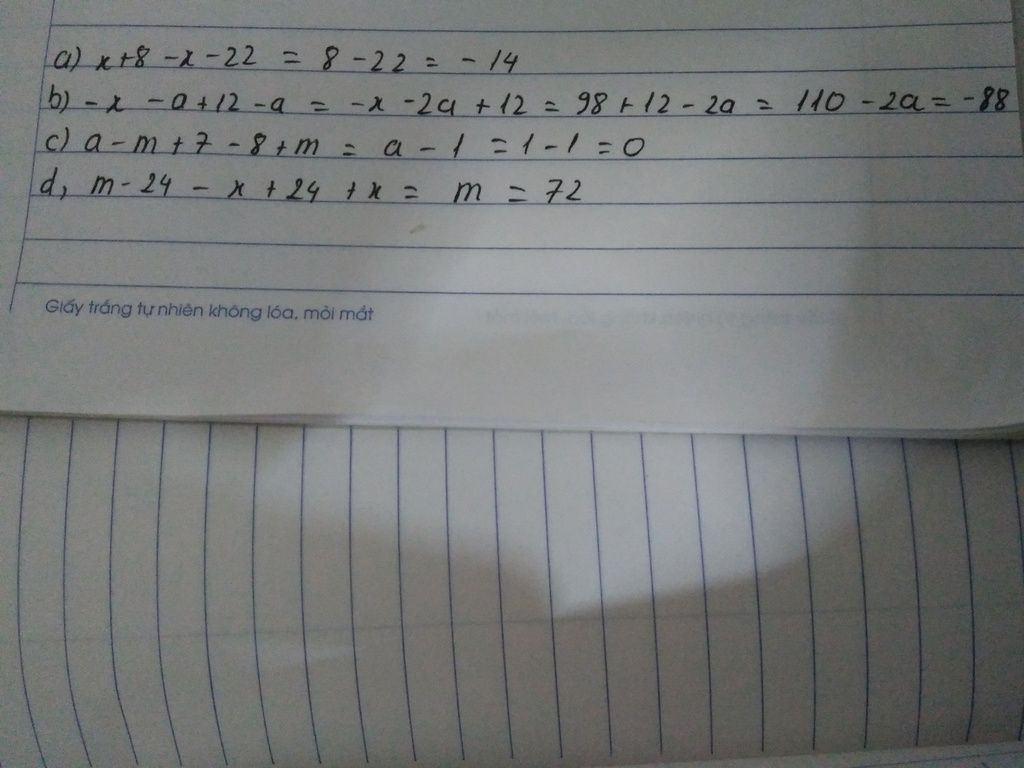 a) x+8 -x-22 = 8-22 = -14
b) -x -a+12-a = -x -2a +12 = 98+12-2a = 110 -2a = -88
c) a-m+7-8+m = a-1 =1-1=0
d, m-24 -x+24 +x = m = 72
Giấy trắng tự nhiên không lóa, mỏi mắt